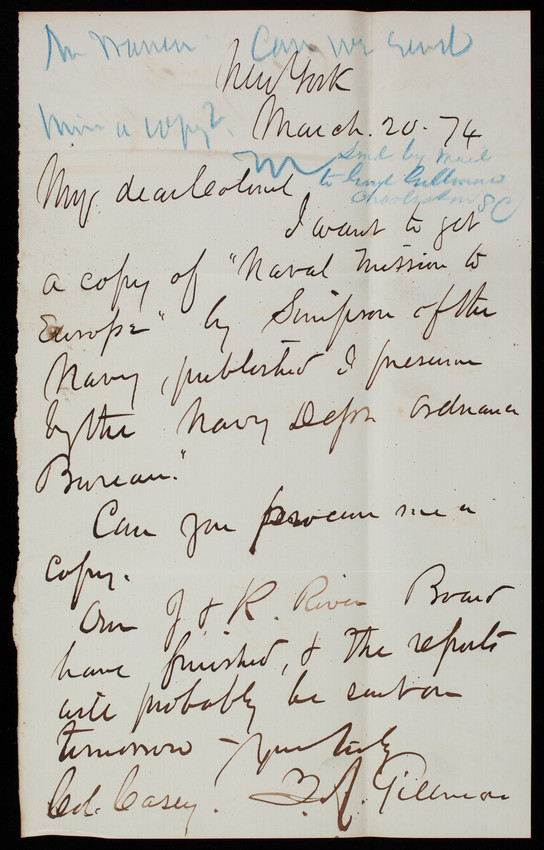 Mr Warren Can we send
him a copy?
New York
March. 20. 74
Send by mail
to Genl Gillmore
Charleston S C
My dear Colonel
I want to get
a copy of "Naval Mission to
Europe" by Simpson of the
Navy, published I presume
by the Navy Dept Ordnance
Bureau."
Can you procure me a
copy.
Our J & K. River Board
have finished, & the reports
will probably be sent on
tomorrow – Yours truly
Col. Casey. Q. A. Gillmore